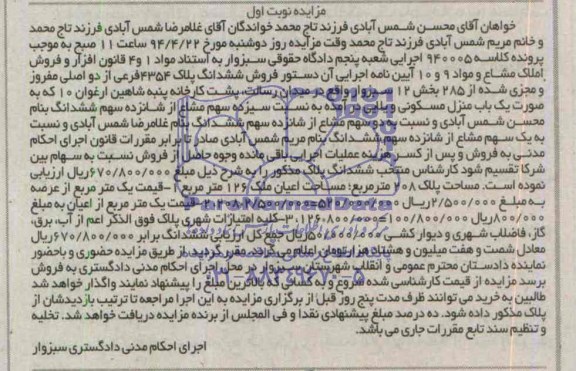 مزایده نوبت اول
خواهان آقای محسن شمس آبادی فرزند تاج محمد خواندگان آقای غلامرضا شمس آبادی فرزند تاج محمد
و خانم مریم شمس آبادی فرزند تاج محمد وقت مزایده روز دوشنبه مورخ ۹۴/۴/۲۲ ساعت ۱۱ صبح به موجب
پرونده کلاسه ۹۴۰۰۰۵ اجرایی شعبه پنجم دادگاه حقوقی سبزوار به استناد مواد ۱ و۴ قانون افراز و فروش
املاک مشاع و مواد ۹ و ۱۰ آیین نامه اجرایی آن دستور فروش ششدانگ پلاک ۴۳۵۴فرعی از دو اصلی مفروز
و مجزی شده از ۲۸۵ بخش ۱۲ سبزوار واقع در میدان رسالت، پشت کارخانه پنبه شاهین ارغوان ۱۰ که به
صورت یک باب منزل مسکونی و بنایی می باشد به نسبت سیزده سهم مشاع از شانزده سهم ششدانگ بنام
محسن شمس آبادی و نسبت به دو سهم مشاع از شانزده سهم ششدانگ بنام غلامرضا شمس آبادی و نسبت
به یک سهم مشاع از شانزده سهم ششدانگ بنام مریم شمس آبادی صادر تا برابر مقررات قانون اجرای احکام
مدنی به فروش و پس از کسر هزینه عملیات اجرایی باقی مانده وجوه حاصل از فروش نسبت به سهام بین
شرکا تقسیم شود کارشناس منتخب ششدانگ پلاک مذکور را به شرح ذیل مبلغ ۶۷۰/۸۰۰/۰۰۰ریال ارزیابی
نموده است. مساحت پلاک ۲۰۸ مترمربع: مساحت اعیان ملک ۱۲۶ متر مربع ۱-قیمت یک متر مربع از عرصه
به مبلغ ۲/۵۰۰/۰۰۰ریال ۵۲۰/۰۰۰/۰۰۰=۲۰۸×۲/۵۰۰/۰۰۰ ۲-قیمت یک متر مربع از اعیان به مبلغ
۸۰۰/۰۰۰ریال ۱۰۰/۸۰۰/۰۰۰=۱۲۶×۸۰۰/۰۰۰ ۳-کلیه امتیازات شهری پلاک فوق الذکر اعم از آب، برق،
گاز، فاضلاب شهری و دیوار کشی ۵۰/۰۰۰/۰۰۰ریال جمع کل ارزیابی ششدانگ برابر ۶۷۰/۸۰۰/۰۰۰ریال
معادل شصت و هفت میلیون و هشتاد هزار تومان اعلام می گردد. مقرر گردید از طریق مزایده حضوری و باحضور
نماینده دادستان محترم عمومی و انقلاب شهرستان سبزوار در محل اجرای احکام مدنی دادگستری به فروش
برسد مزایده از قیمت کارشناسی شده شروع و به کسانی که بالاترین مبلغ را پیشنهاد نمایند واگذار خواهد شد
طالبین به خرید می توانند ظرف مدت پنج روز قبل از برگزاری مزایده به این اجرا مراجعه تا ترتیب بازدیدشان از
پلاک مذکور داده شود. ده درصد مبلغ پیشنهادی نقدا و فی المجلس از برنده مزایده دریافت خواهد شد. تخلیه
و تنظیم سند تابع مقررات جاری می باشد.
اجرای احکام مدنی دادگستری سبزوار